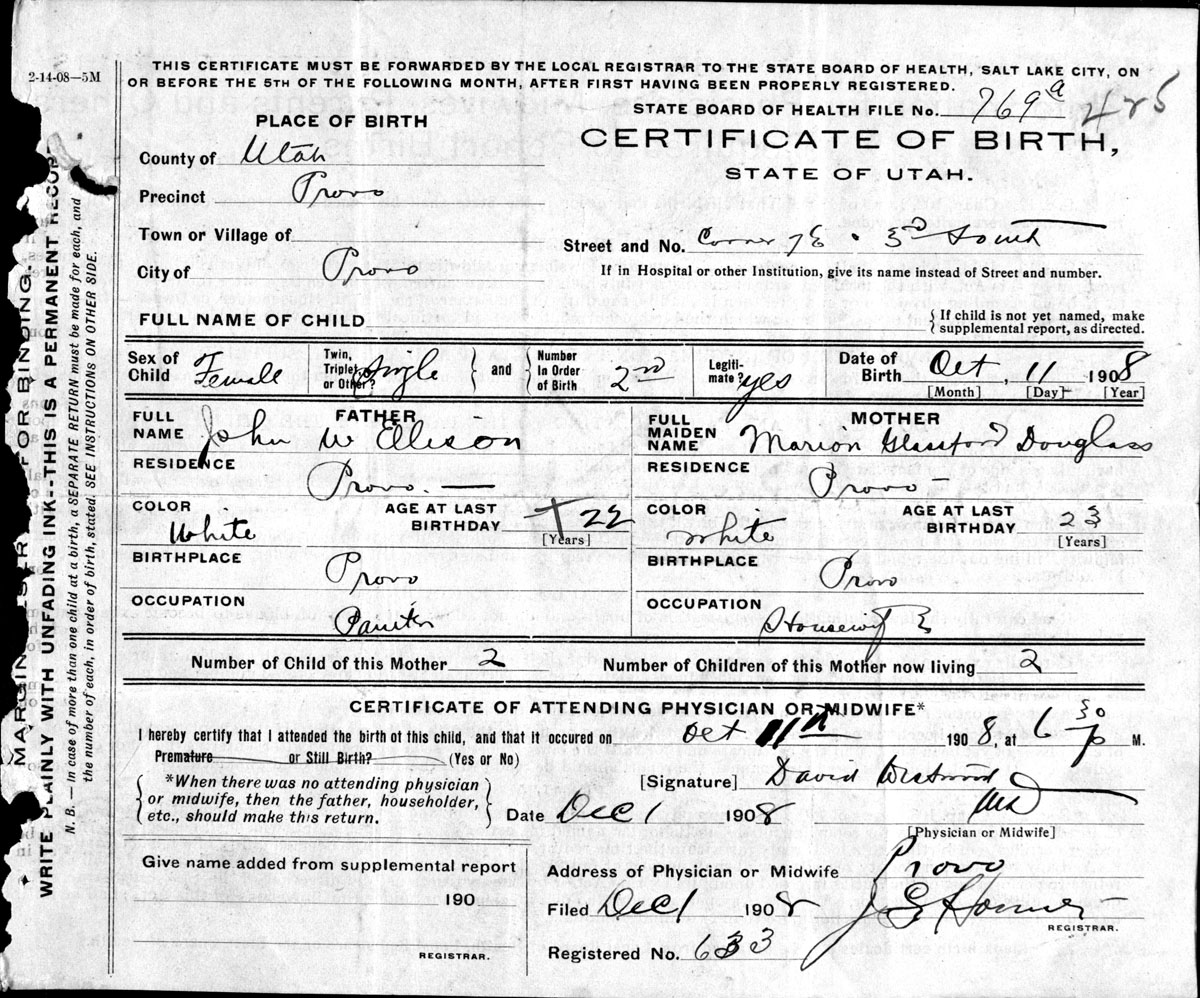 2-14-08—5M
THIS CERTIFICATE MUST BE FORWARDED BY THE LOCAL REGISTRAR TO THE STATE BOARD OF HEALTH, SALT LAKE CITY, ON
OR BEFORE THE 5TH OF THE FOLLOWING MONTH, AFTER FIRST HAVING BEEN PROPERLY REGISTERED.
STATE BOARD OF HEALTH FILE No. 769 a 425
PLACE OF BIRTH
CERTIFICATE OF BIRTH,
STATE OF UTAH.
County of Utah
Precinct Provo
Town or Village of
Street and No. Corner 7 E. 3rd South
City of Provo
If in Hospital or other Institution, give its name instead of Street and number.
FULL NAME OF CHILD
{ If child is not yet named, make
{ supplemental report, as directed.
Sex of Child Female
Twin, Triplet, or Other? Single } and {
Number In Order of Birth 2nd
Legiti- mate? yes
Date of Birth Oct, 11 1908
[Month] [Day] [Year]
FATHER
FULL NAME John W Ellison
MOTHER
FULL MAIDEN NAME Marion Glassford Douglass
RESIDENCE Provo.—
RESIDENCE Provo—
COLOR White
AGE AT LAST BIRTHDAY 22
[Years]
COLOR White
AGE AT LAST BIRTHDAY 23
[Years]
BIRTHPLACE Provo
BIRTHPLACE Provo
OCCUPATION Painter
OCCUPATION Housewife
Number of Child of this Mother 2
Number of Children of this Mother now living 2
CERTIFICATE OF ATTENDING PHYSICIAN OR MIDWIFE*
I hereby certify that I attended the birth of this child, and that it occured on Oct 11th 1908, at 6 30 p M.
Premature or Still Birth? (Yes or No)
{ *When there was no attending physician }
or midwife, then the father, householder,
etc., should make this return.
[Signature] David Westwood
MD
Date Dec 1 1908
[Physician or Midwife]
Give name added from supplemental report
190
REGISTRAR.
Address of Physician or Midwife Provo
Filed Dec 1 1908
REGISTRAR.
Registered No. 633
* MARGIN RESER FOR BINDING.
WRITE PLAINLY WITH UNFADING INK--THIS IS A PERMANENT RECOR
N. B.—In case of more than one child at a birth, a SEPARATE RETURN must be made for each, and
the number of each, in order of birth, stated. SEE INSTRUCTIONS ON OTHER SIDE.